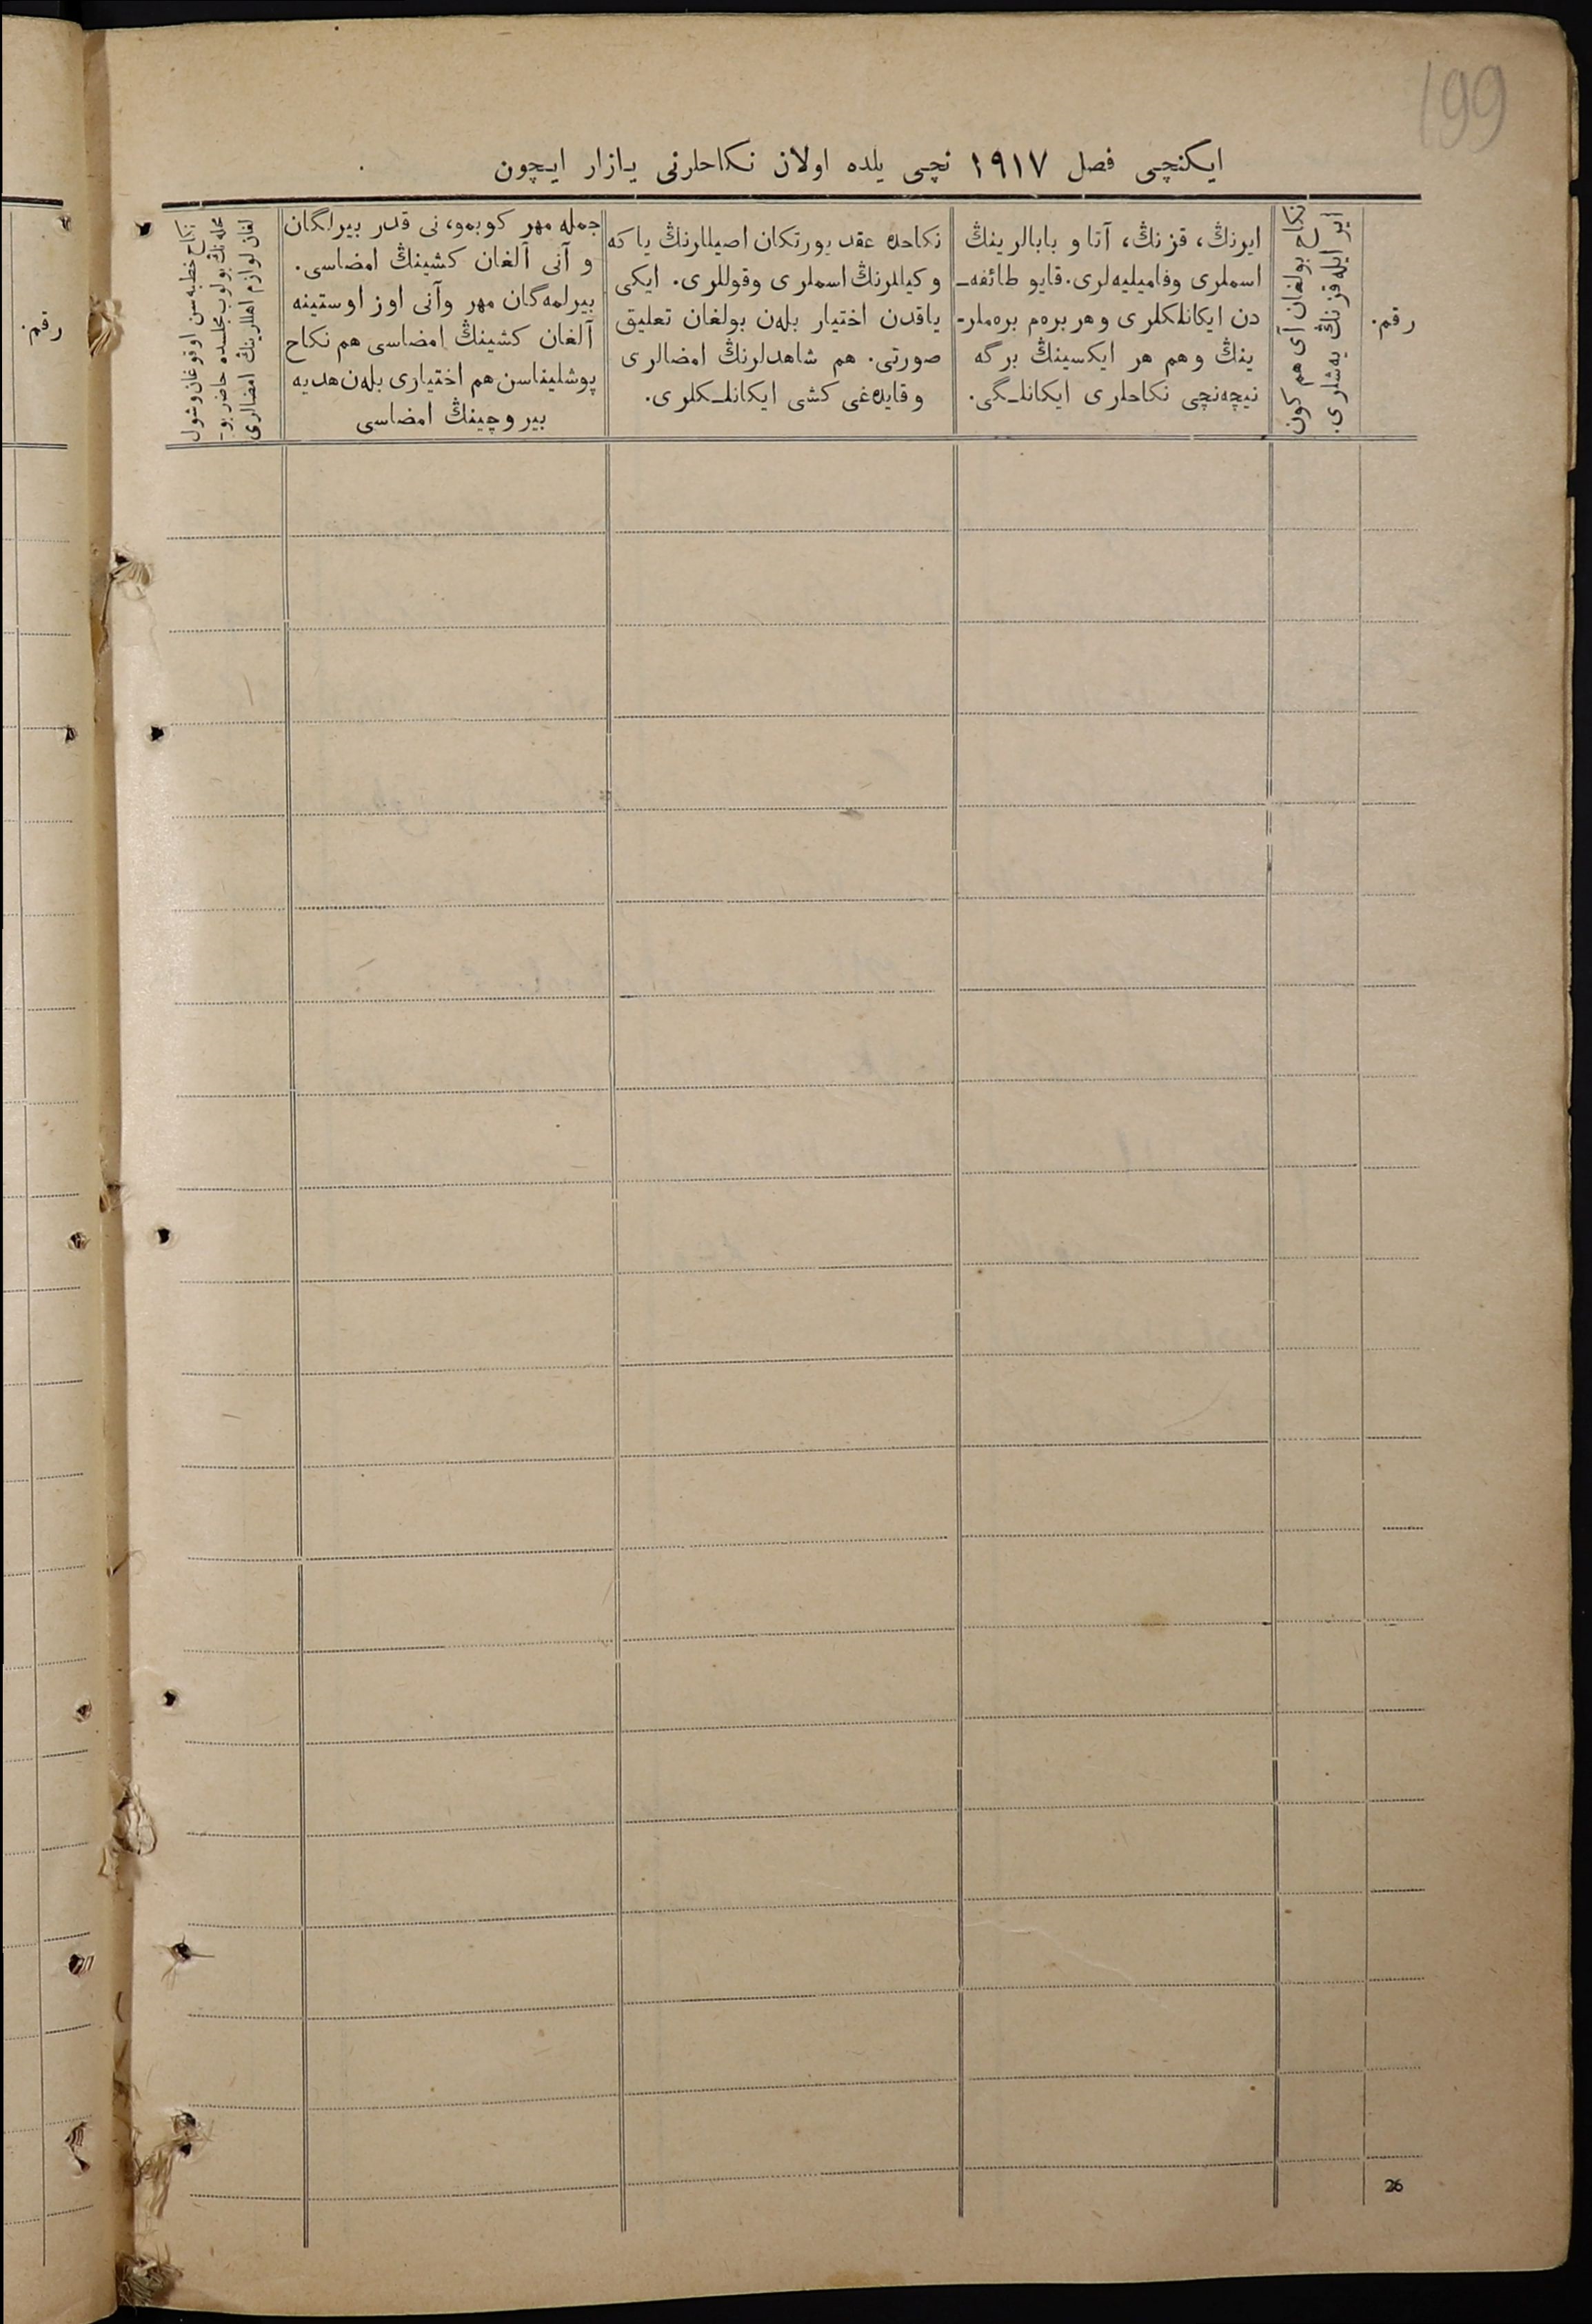 199
ایکنچی فصل ١٩١٧ نچی یلده اولان نکاحلرنی یازار ایچون
رقم.
نکاح بولغان آی هم کون
ایر ایله قزنڭ یەشلری.
ایرنڭ، قزنڭ، آتا و بابالرینڭ
اسملری وفامیلیەلری. قایو طائفەـ
دن ایکانلکلری وهر برەم برەملرـ
ینڭ وهم هر ایکسینڭ برگە
نیچەنچی نکاحلری ایکانلـگی.
نکاحدە عقد یورتکان اصیللارنڭ یاکە
وکیللرنڭ اسملری وقوللری. ایکی
یاقدن اختیار بلەن بولغان تعلیق
صورتی. هم شاهدلرنڭ امضالری
وقایدەغی کشی ایکانلـکلری.
جملە مهر کوبمو، نی قدر بیرلگان
و آنی آلغان کشینڭ امضاسی.
بیرلمەگان مهر وآنی اوز اوستینە
آلغان کشینڭ امضاسی هم نکاح
پوشلیناسن هم اختیاری بلەن هدیە
بیروچینڭ امضاسی
نکاح خطبەسن اوقوغان وشول
محلەنڭ بولوب مجلسدە حاضر بوـ
لغان لوازم اهللرینڭ امضالری
رقم.
26